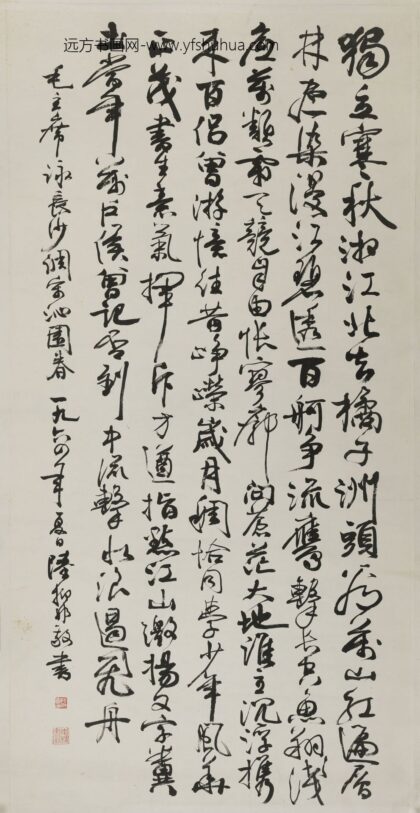 遠方书画网-www.yfshuhua.com
獨立寒秋湘江北去橘子洲頭看萬山紅遍層
林盡染漫江碧透百舸爭流鷹擊長空魚翔淺
底萬類霜天競自由悵寥廓問蒼茫大地誰主沉浮攜
來百侶曾游憶往昔崢嶸歲月稠恰同學少年風華
正茂書生意氣揮斥方遒指點江山激揚文字糞
土當年萬戶侯曾記否到中流擊水浪遏飛舟
毛主席詠長沙調寄沁園春 一九六四年夏日 陸抑敬書